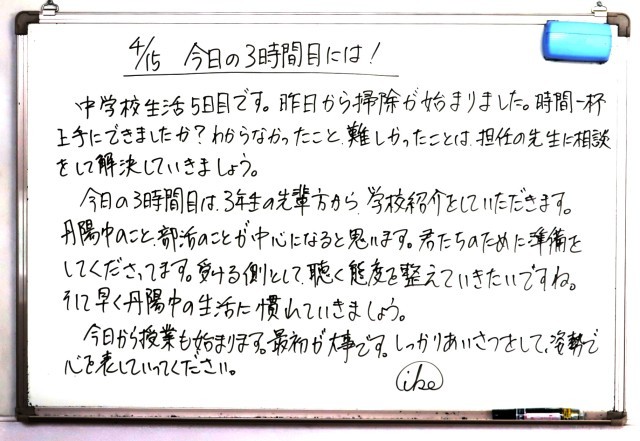 4/15 今日の3時間目には！
中学校生活5日目です。昨日から掃除が始まりました。時間一杯
上手にできましたか？わからなかったこと、難しかったことは、担任の先生に相談
をして解決していきましょう。
今日の3時間目は、3年生の先輩方から、学校紹介をしていただきます。
丹陽中のこと、部活のことが中心になると思います。君たちのために準備を
してくださってます。受ける側として、聴く態度を整えていきたいですね。
そして早く丹陽中の生活に慣れていきましょう。
今日から授業も始まります。最初が大事です。しっかりあいさつをして、姿勢で
心を表していってください。
ike